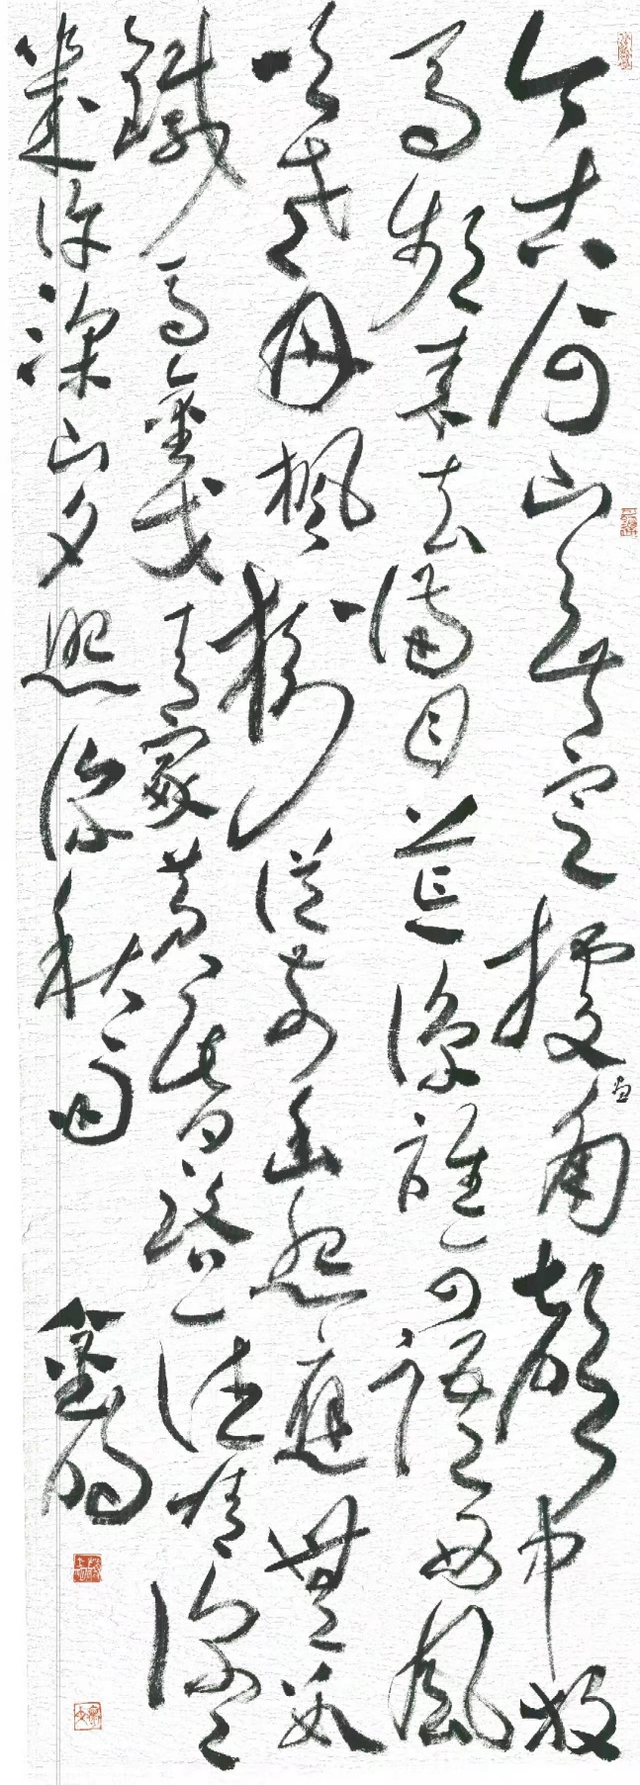 今古河山無定據画角聲中牧
馬頻來去滿目荒涼誰可語西風
吹老丹楓樹從前幽怨應無數
鐵馬金戈青冢黃昏路一往情深々
幾許深山夕照深秋雨